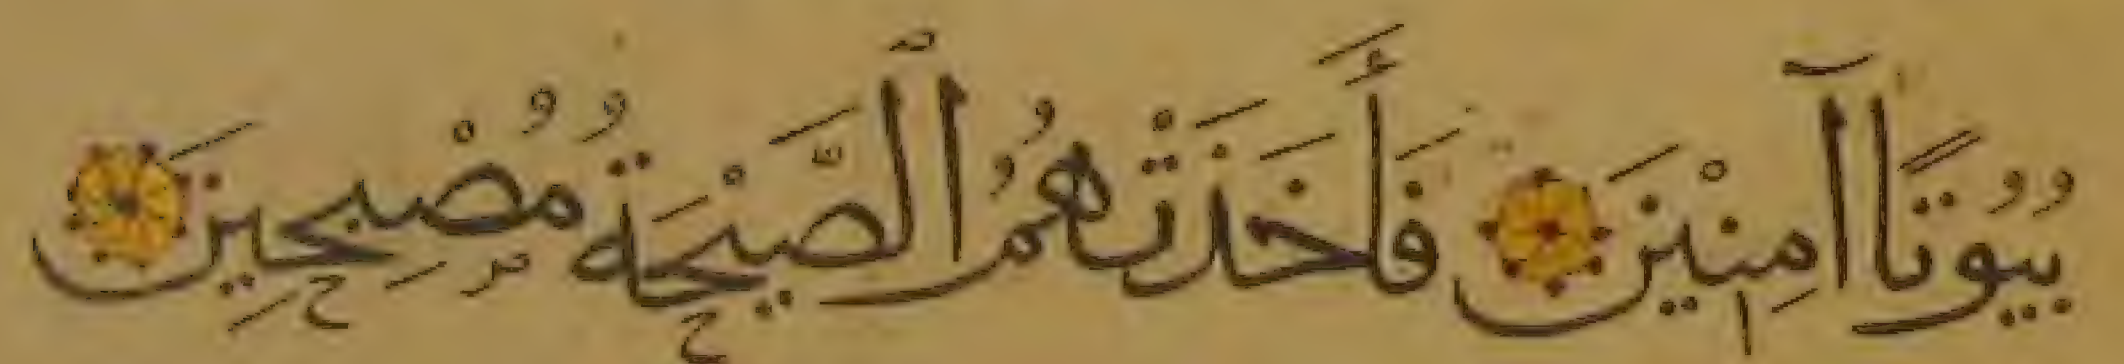 بُيُوتًا آمِنِيْنَ فَأَخَذَتْهُمُ الصَّيْحَةُ مُصْبِحِينَ